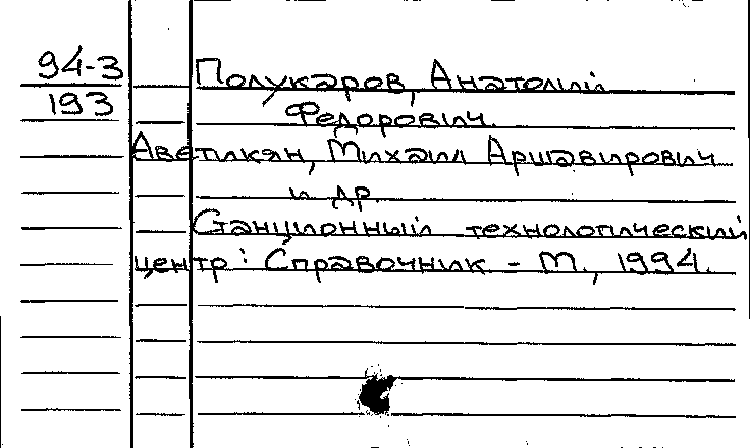 94-3
193
Полукаров, Анатолий
Федорович.
Аветикян, Михаил Аршавирович
и др.
Станционный технологический
центр: Справочник - М., 1994.